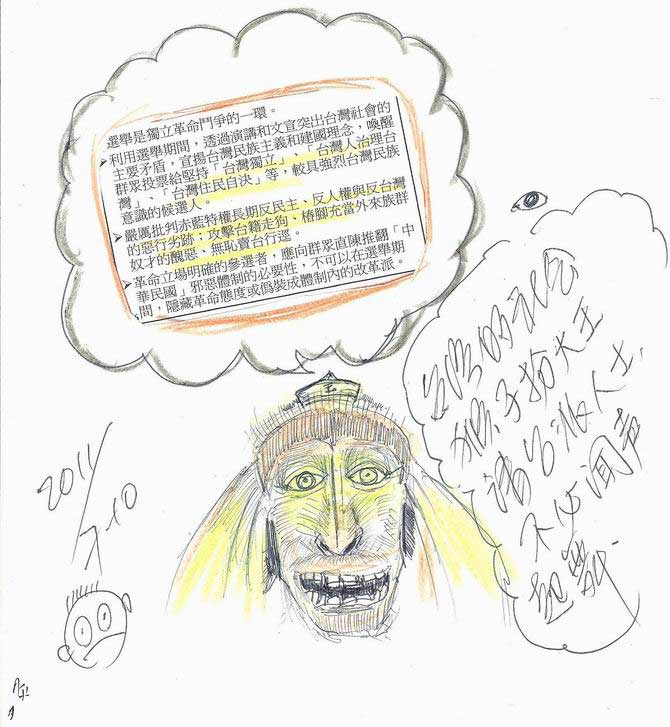 選舉是獨立革命鬥爭的一環。
➢利用選舉期間，透過演講和文宣突出台灣社會的
主要矛盾，宣揚台灣民族主義和建國理念，喚醒
群眾投票給堅持「台灣獨立」、「台灣人治理台
灣」、「台灣住民自決」等，較具強烈台灣民族
意識的候選人。
➢嚴厲批判赤藍特權長期反民主、反人權與反台灣
的惡行劣跡；攻擊台籍走狗、樁腳充當外來族群
奴才的醜惡、無恥賣台行逕。
➢革命立場明確的參選者，應向群眾直陳推翻「中
華民國」邪惡體制的必要性，不可以在選舉期
間，隱藏革命態度或偽裝成體制內的改革派。
王
台灣的社會
猴子扮大王
諸台派人士.
不必聞声
起舞.
2011/
7.10